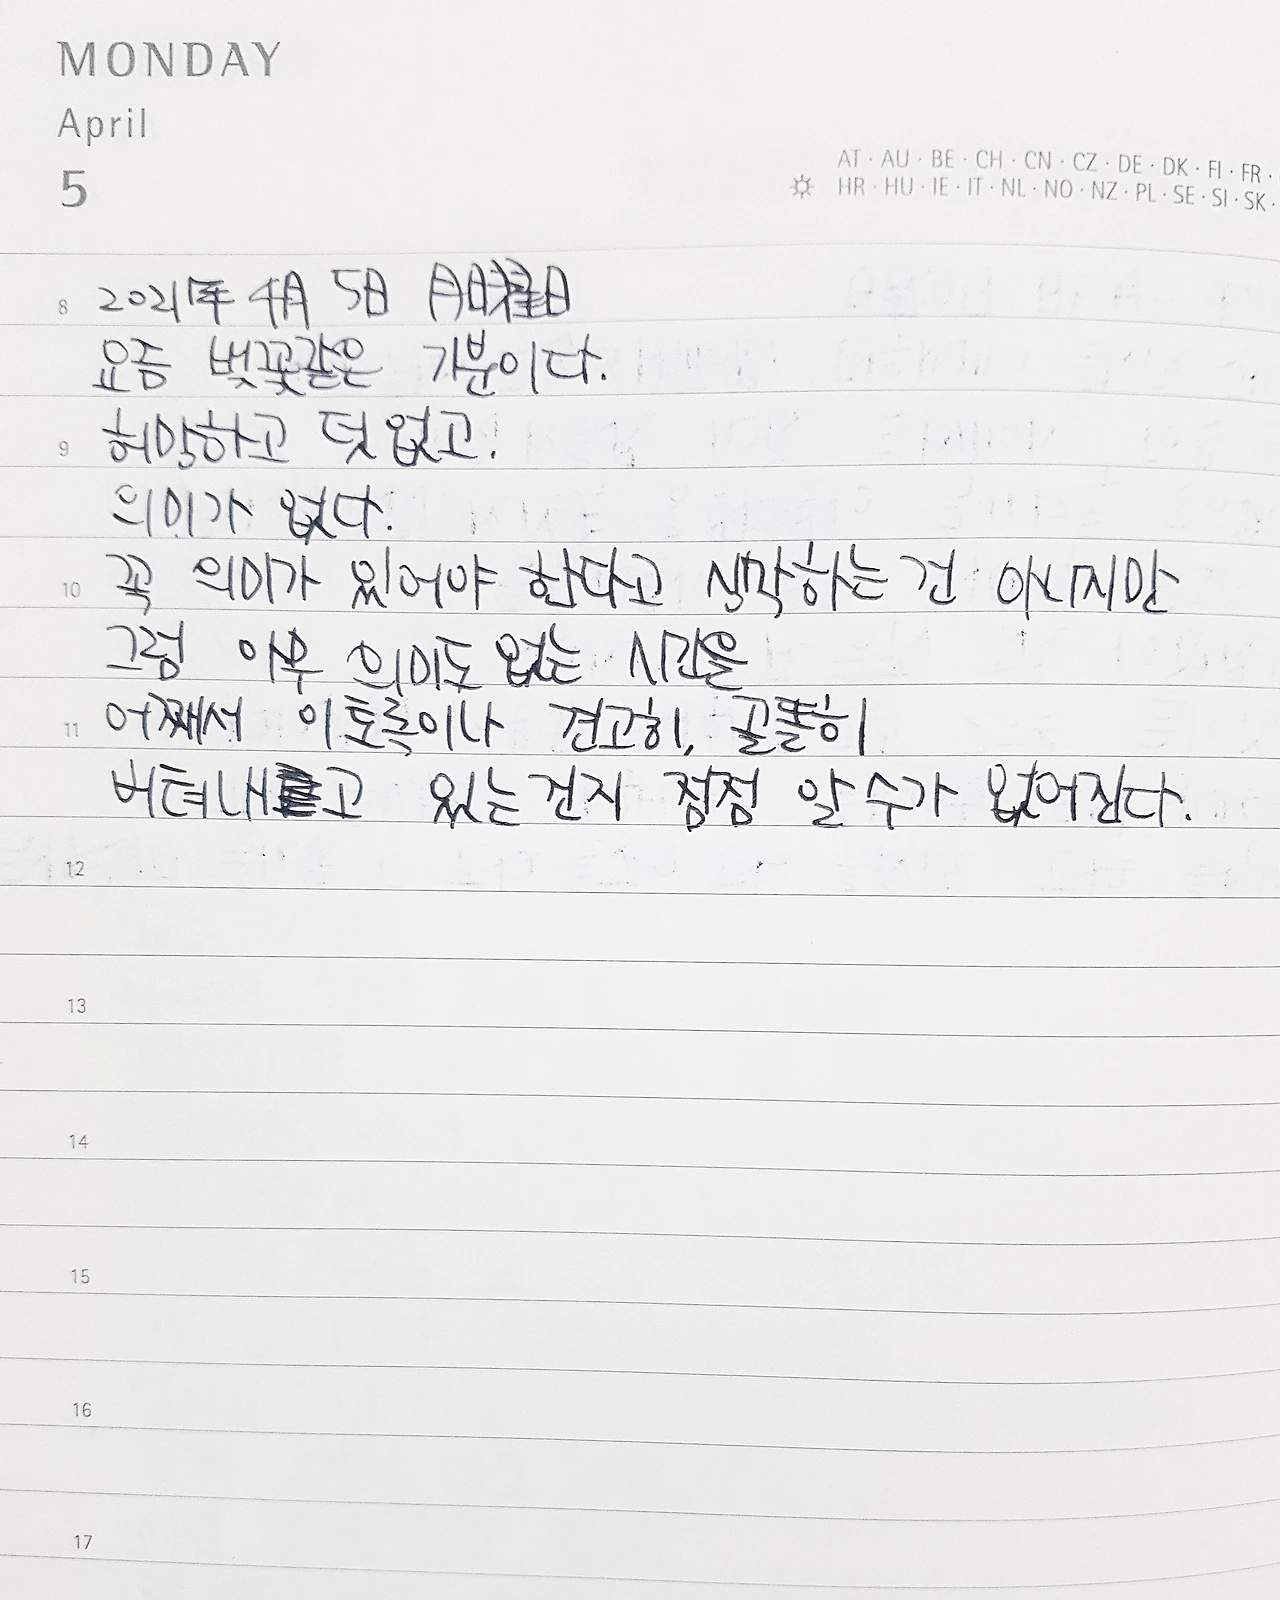 MONDAY
April
5
AT · AU · BE · CH · CN · CZ · DE · DK · FI · FR ·
HR · HU · IE · IT · NL · NO · NZ · PL · SE · SI · SK ·
8 2021年 4月 5日 月曜日
요즘 벚꽃같은 기분이다.
9 허망하고 덧없고.
의미가 없다.
10 꼭 의미가 있어야 한다고 생각하는 건 아니지만
그럼 아무 의미도 없는 시간을
11 어째서 이토록이나 견고히, 골똘히
버텨내고 있는건지 점점 알 수가 없어진다.
12
13
14
15
16
17